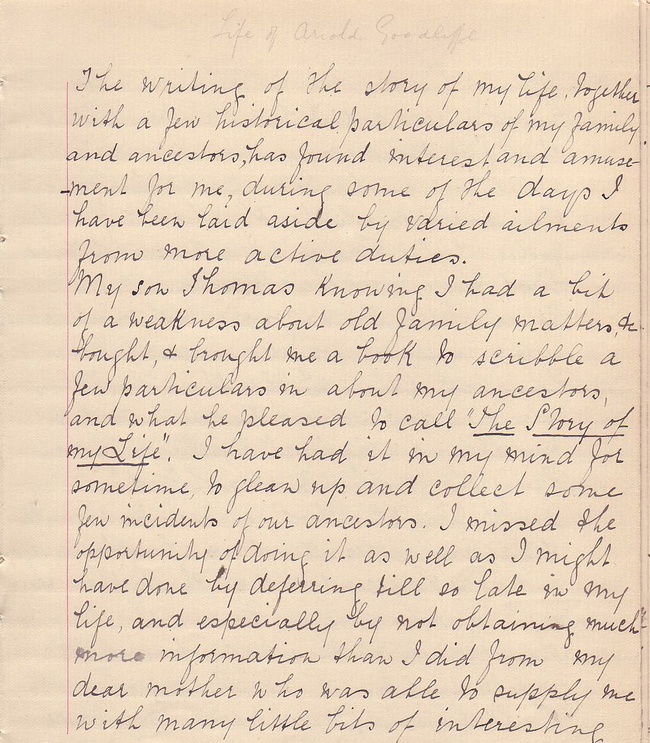 Life of Arnold Goodliffe
The writing of the story of my life, together
with a few historical particulars of my family
and ancestors, has found interest and amuse-
-ment for me, during some of the days I
have been laid aside by varied ailments
from more active duties.
My son Thomas knowing I had a bit
of a weakness about old family matters, &
bought, & brought me a book to scribble a
few particulars in about my ancestors,
and what he pleased to call "The Story of
my Life". I have had it in my mind for
sometime, to glean up and collect some
few incidents of our ancestors. I missed the
opportunity of doing it as well as I might
have done by deferring till so late in my
life, and especially by not obtaining much
more information than I did from my
dear mother who was able to supply me
with many little bits of interesting